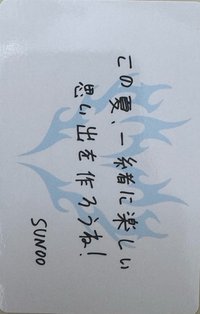 この夏、一緒に楽しい
思い出を作ろうね！
SUNOO